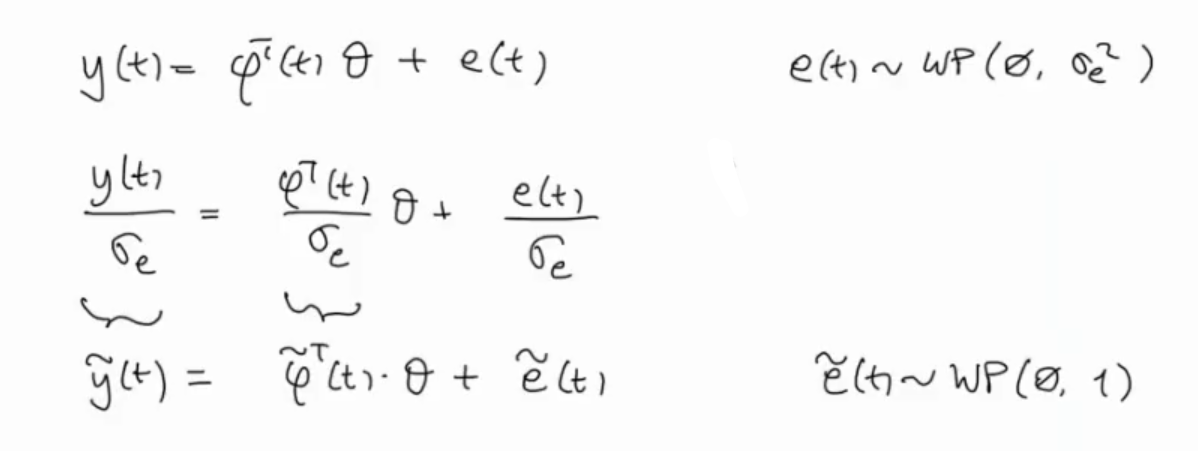 y(t) = φᵀ(t) θ + e(t) e(t) ~ WP(∅, σₑ²)
y(t)/σₑ = φᵀ(t)/σₑ θ + e(t)/σₑ
ỹ(t) = φ̃ᵀ(t)·θ + ẽ(t) ẽ(t) ~ WP(∅, 1)